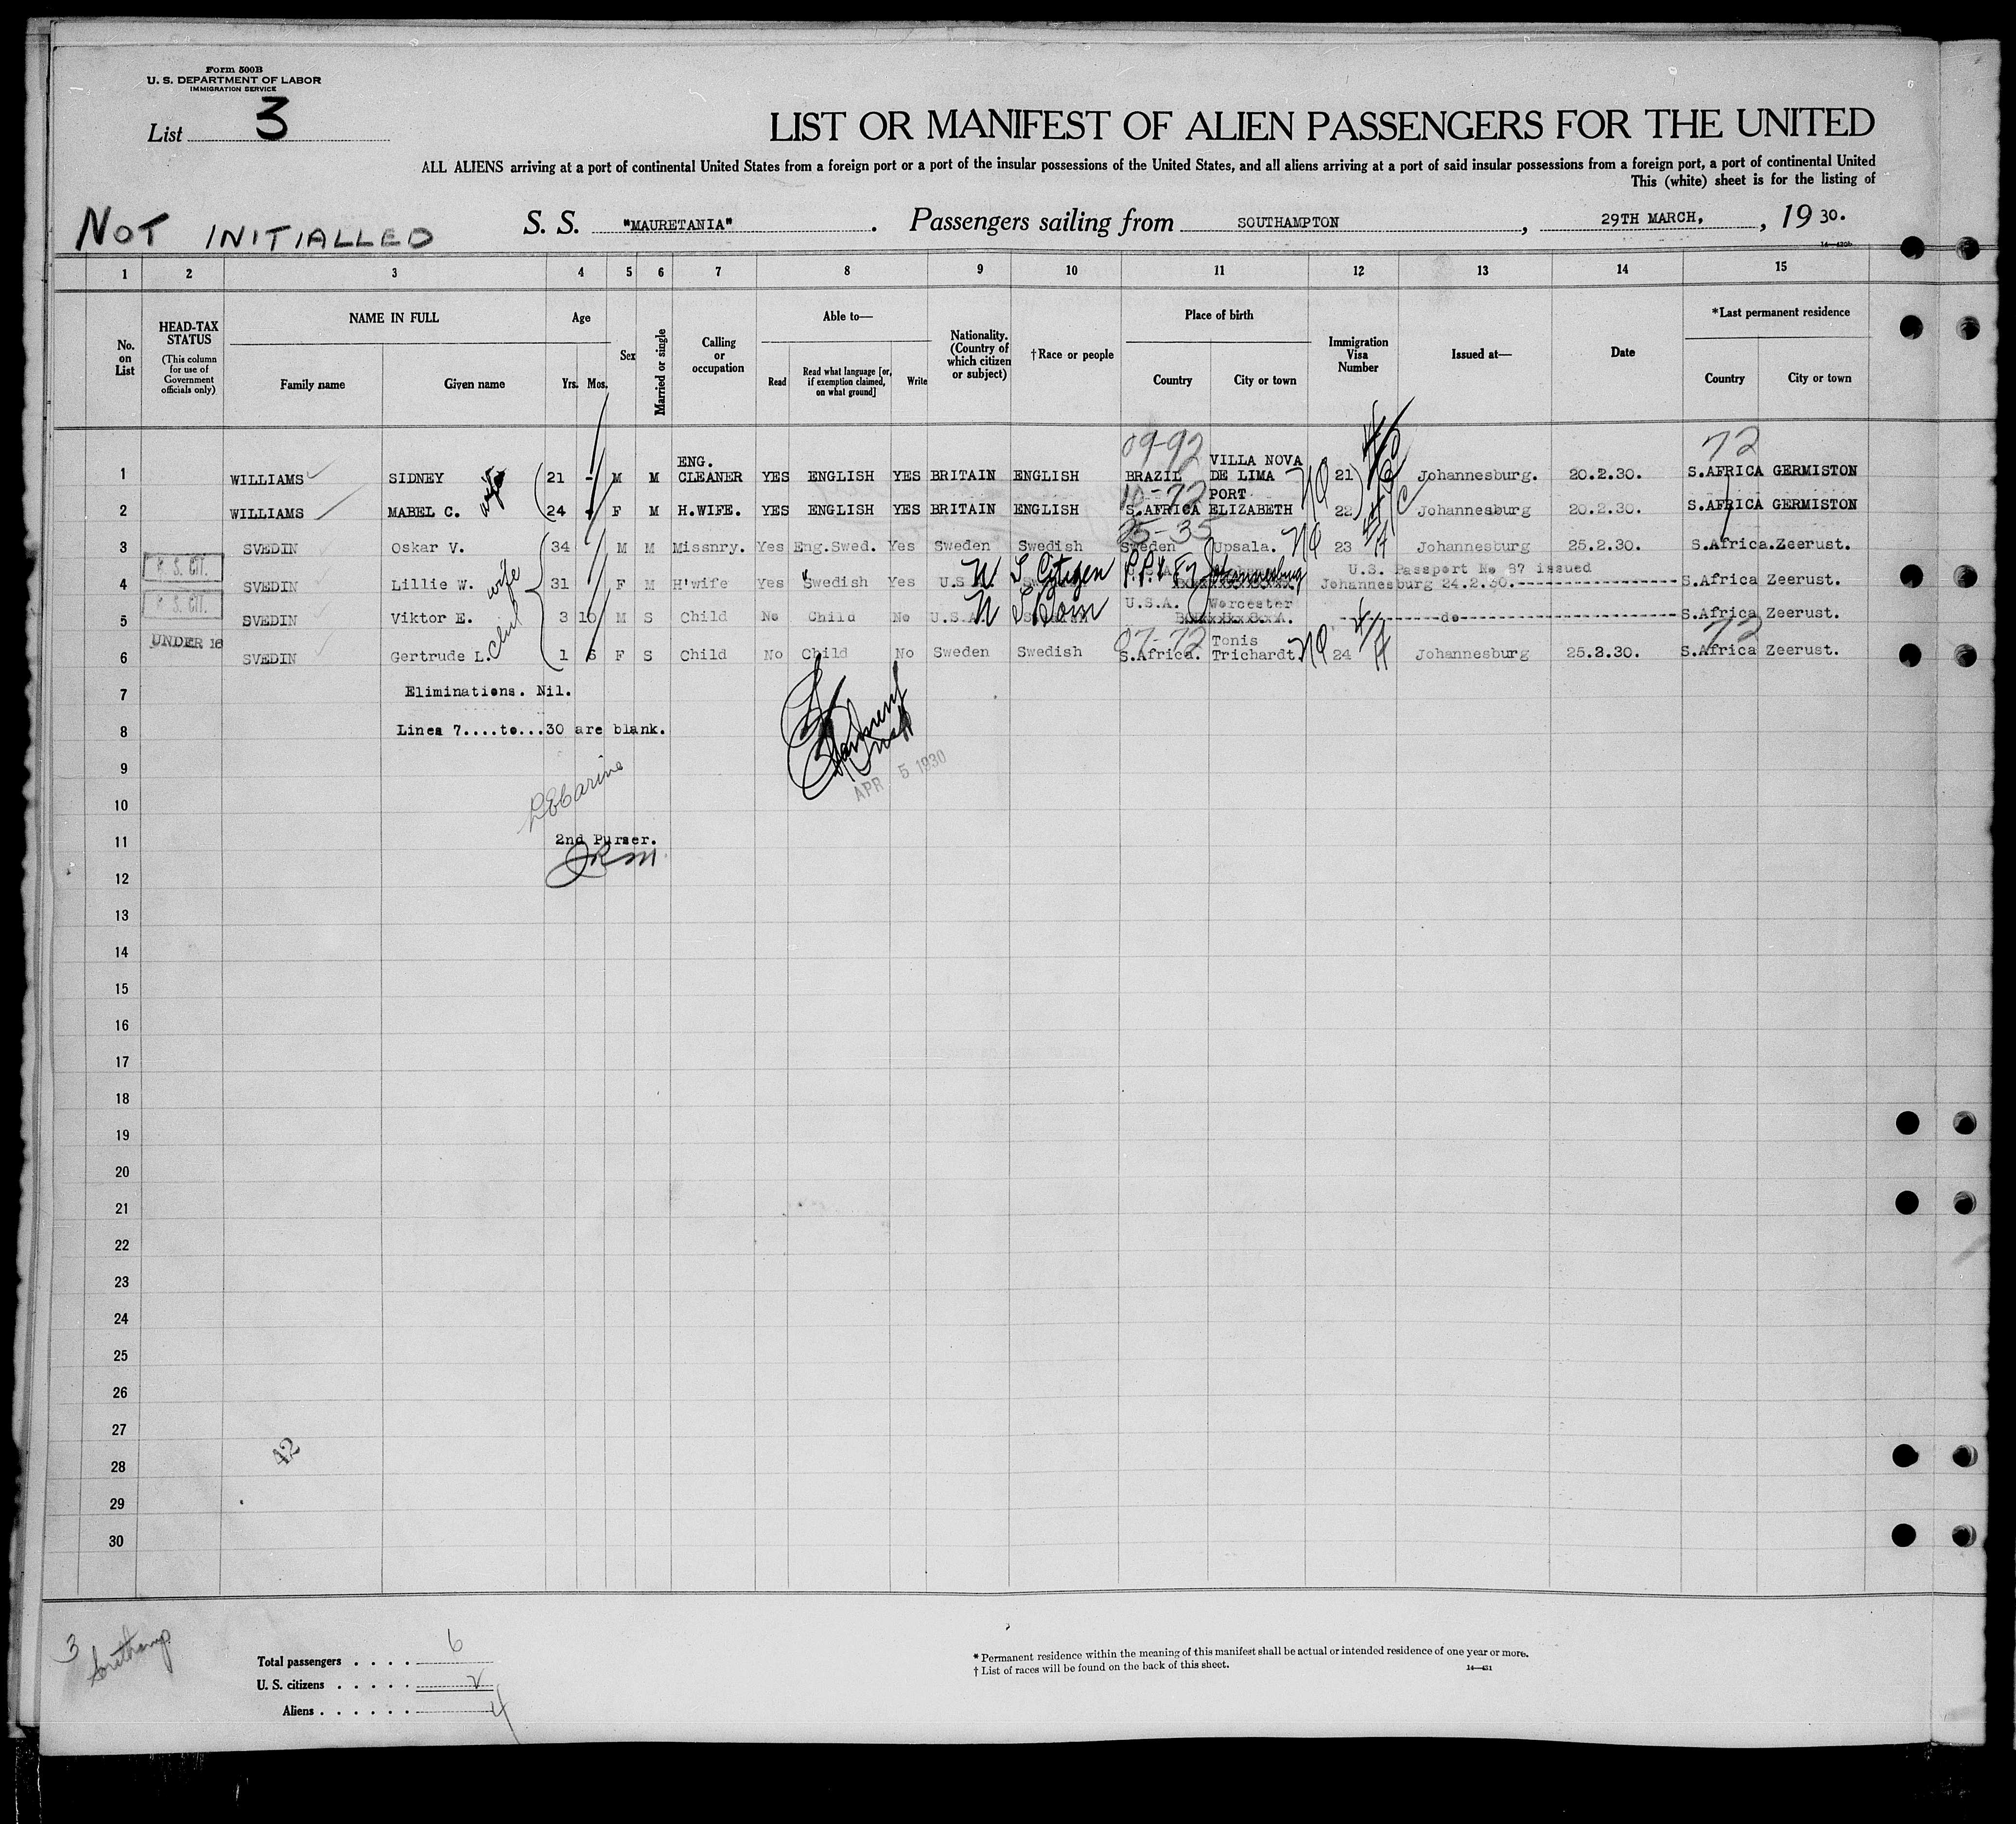 Form 500B
U. S. DEPARTMENT OF LABOR
IMMIGRATION SERVICE
List 3
LIST OR MANIFEST OF ALIEN PASSENGERS FOR THE UNITED
ALL ALIENS arriving at a port of continental United States from a foreign port or a port of the insular possessions of the United States, and all aliens arriving at a port of said insular possessions from a foreign port, a port of continental United
This (white) sheet is for the listing of
NOT INITIALLED
S. S. "MAURETANIA". Passengers sailing from SOUTHAMPTON, 29TH MARCH, , 19 30.
1 2 3 4 5 6 7 8 9 10 11 12 13 14 15
No. on List
HEAD-TAX STATUS (This column for use of Government officials only)
NAME IN FULL
Family name Given name
Age
Yrs. Mos.
Sex
Married or single
Calling or occupation
Able to—
Read
Read what language [or, if exemption claimed, on what ground]
Write
Nationality. (Country of which citizen or subject)
†Race or people
Place of birth
Country City or town
Immigration Visa Number
Issued at—
Date
*Last permanent residence
Country City or town
09-92 72
1 WILLIAMS SIDNEY 21 - M M ENG. CLEANER YES ENGLISH YES BRITAIN ENGLISH BRAZIL VILLA NOVA DE LIMA NQ 21 Johannesburg. 20.2.30. S.AFRICA GERMISTON
2 WILLIAMS MABEL C. wife 24 F M H.WIFE. YES ENGLISH YES BRITAIN ENGLISH S.AFRICA PORT ELIZABETH 22 Johannesburg 20.2.30. S.AFRICA GERMISTON
3 SVEDIN Oskar V. 34 M M Missnry. Yes Eng.Swed. Yes Sweden Swedish 25-35 Sweden Upsala. NQ 23 Johannesburg 25.2.30. S.Africa.Zeerust.
U. S. CIT.
4 SVEDIN Lillie W. wife 31 F M H'wife Yes Swedish Yes U.S. Citizen P.P. # 87 Johannesburg U.S. Passport No 87 issued Johannesburg 24.2.30. S.Africa Zeerust.
U. S. CIT.
5 SVEDIN Viktor E. child 3 10 M S Child No Child No U.S.A. U S Born U.S.A. Worcester do S.Africa Zeerust.
UNDER 16
6 SVEDIN Gertrude L. 1 F S Child No Child No Sweden Swedish 07-72 S.Africa. Tonis Trichardt. NQ 24 Johannesburg 25.2.30. 72 S.Africa Zeerust.
7 Eliminations. Nil.
8 Lines 7....to...30 are blank.
9
APR 5 1930
10
11 2nd Purser.
12
13
14
15
16
17
18
19
20
21
22
23
24
25
26
27
42
28
29
30
3 Southamp
Total passengers . . . . 6
U. S. citizens . . . . . 2
Aliens . . . . . . 4
* Permanent residence within the meaning of this manifest shall be actual or intended residence of one year or more.
† List of races will be found on the back of this sheet.
14—431